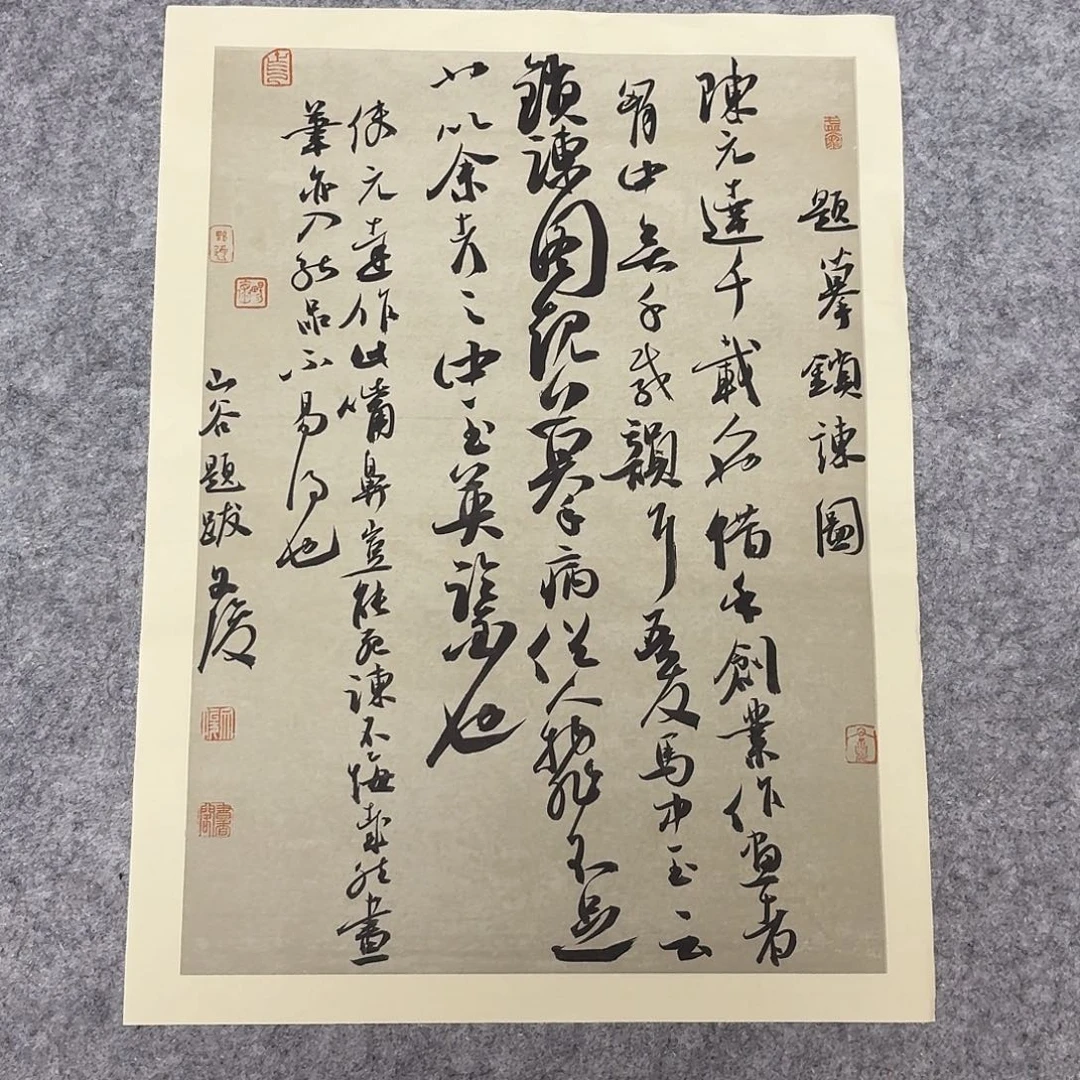 題摹鎖諫圖
陳元達千載人也惜乎創業作畫者
胷中無千載韻耳吾友馬中玉云
鎖諫图規摹病俗人物非不足
以余考之中玉英鑒也
使元達作此嘴鼻豈能死諫不悔哉然畫
筆亦入能品不易得也
山谷題跋